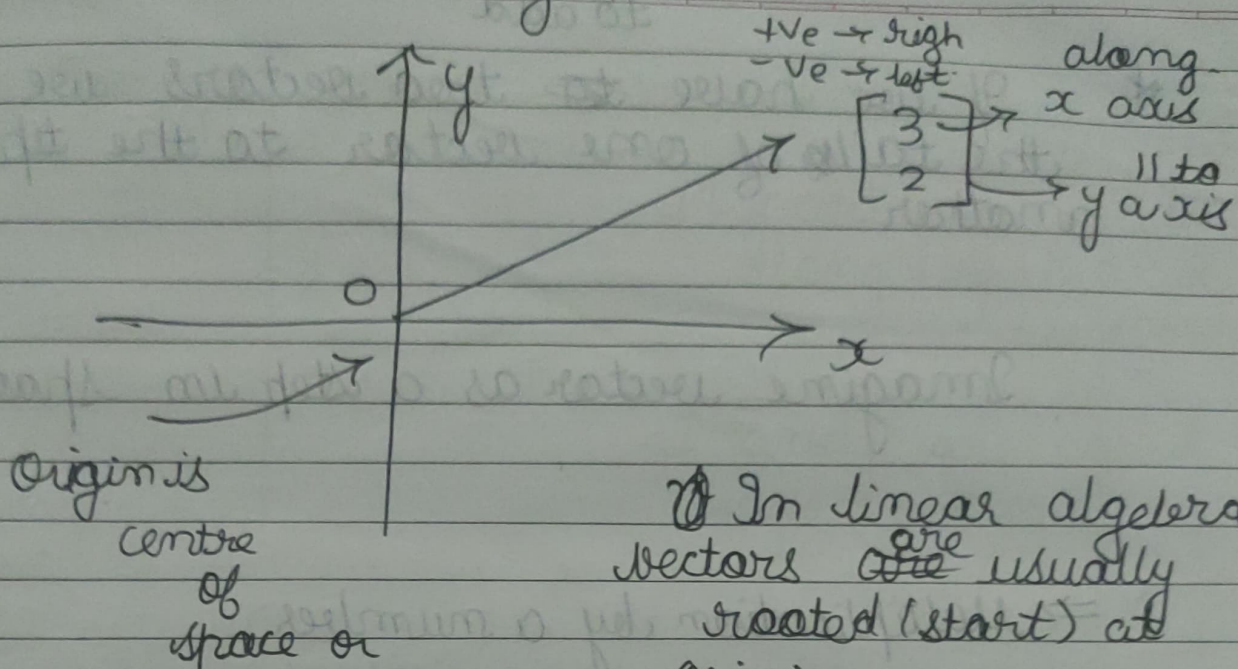 y
+ve → righ
-ve → left
along
x axis
[3
2]
|| to
y axis
O
x
Origin is
centre
of
space or
In linear algebra
vectors are usually
rooted (start) at